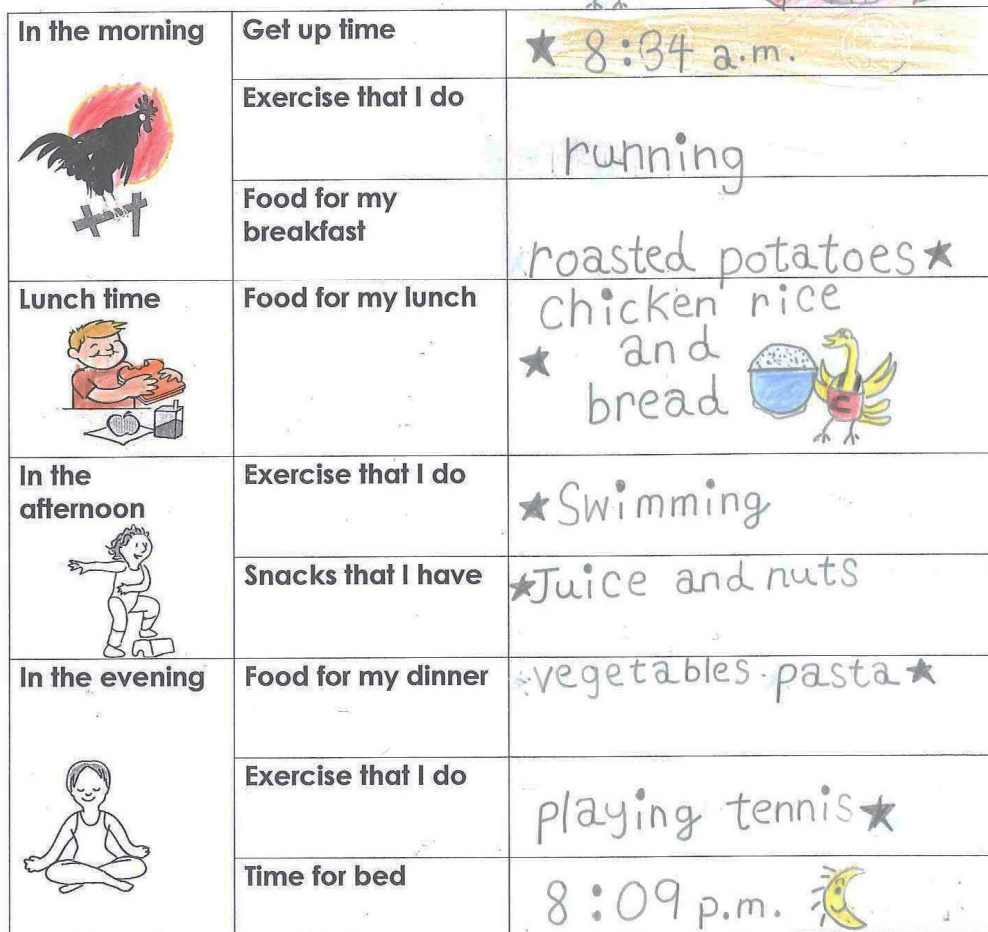 In the morning
Get up time
8:34 a.m.
Exercise that I do
running
Food for my
breakfast
roasted potatoes
Lunch time
Food for my lunch
Chicken rice
and
bread
C
In the
afternoon
Exercise that I do
Swimming
Snacks that I have
Juice and nuts
In the evening
Food for my dinner
vegetables pasta
Exercise that I do
playing tennis
Time for bed
8:09 p.m.